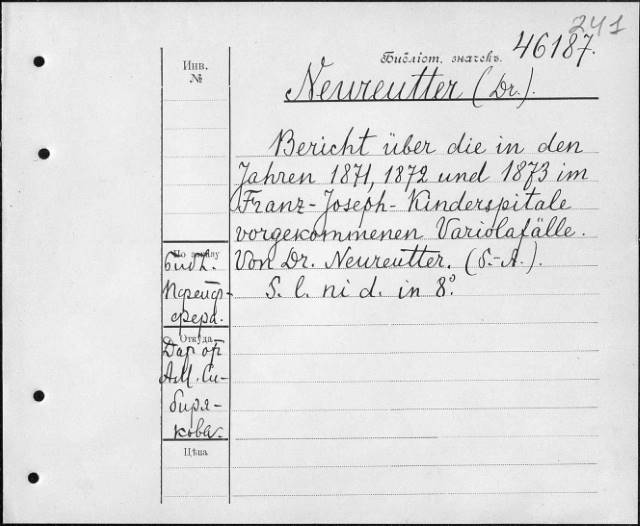 241
Инв.
№
Библіот. значекъ.
46187.
Neureutter (Dr.).
Bericht über die in den
Jahren 1871, 1872 und 1873 im
Franz-Joseph-Kinderspitale
vorgekommenen Variolafälle.
Von Dr. Neureutter. (S.-A.).
S. l. ni d. in 8º.
По
Библ.
Пфейф-
фера.
Откуда
Дар от
А.М. Си-
биря-
кова.
Цѣна